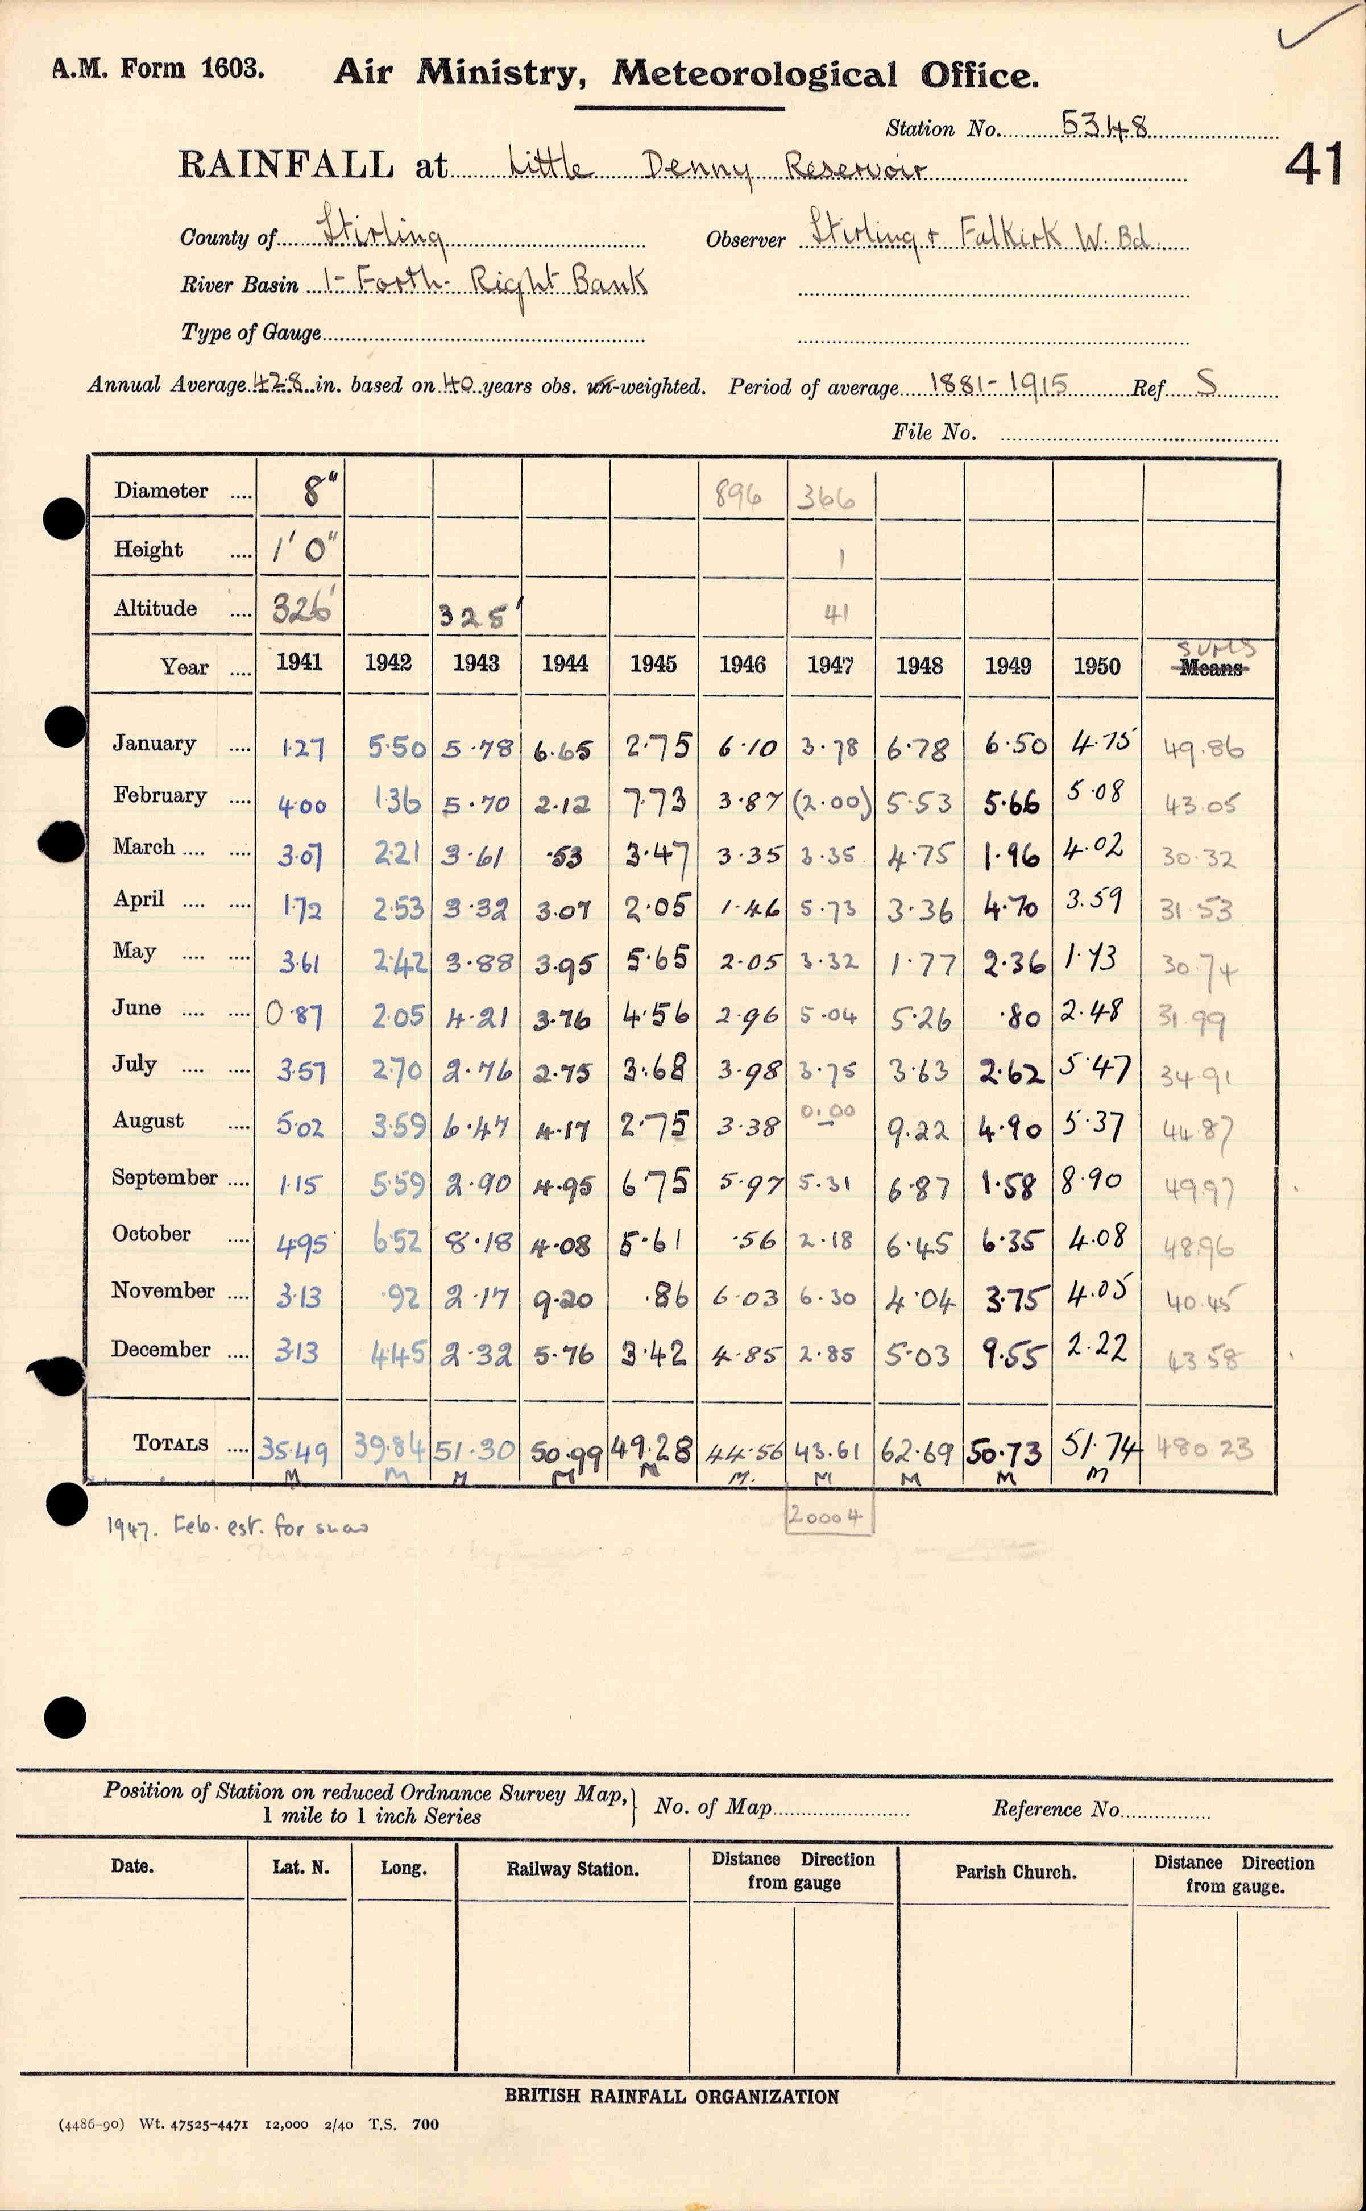 A.M. Form 1603. Air Ministry, Meteorological Office.
Station No. 5348
41
RAINFALL at Little Denny Reservoir
County of Stirling Observer Stirling + Falkirk W. Bd.
River Basin 1- Forth- Right Bank
Type of Gauge
Annual Average 42.8 in. based on 40 years obs. un-weighted. Period of average 1881-1915 Ref S
File No.
Diameter .... 8" 896 366
Height .... 1' 0" 1
Altitude .... 326' 325' 41
SUMS
Year .... 1941 1942 1943 1944 1945 1946 1947 1948 1949 1950 Means
January .... 1.27 5.50 5.78 6.65 2.75 6.10 3.78 6.78 6.50 4.75 49.86
February .... 4.00 1.36 5.70 2.12 7.73 3.87 (2.00) 5.53 5.66 5.08 43.05
March .... .... 3.07 2.21 3.61 .53 3.47 3.35 3.35 4.75 1.96 4.02 30.32
April .... .... 1.72 2.53 3.32 3.07 2.05 1.46 5.73 3.36 4.70 3.59 31.53
May .... .... 3.61 2.42 3.88 3.95 5.65 2.05 3.32 1.77 2.36 1.73 30.74
June .... .... 0.87 2.05 4.21 3.76 4.56 2.96 5.04 5.26 .80 2.48 31.99
July .... .... 3.57 2.70 2.76 2.75 3.68 3.98 3.75 3.63 2.62 5.47 34.91
August .... 5.02 3.59 6.47 4.17 2.75 3.38 0.00 9.22 4.90 5.37 44.87
September .... 1.15 5.59 2.90 4.95 6.75 5.97 5.31 6.87 1.58 8.90 49.97
October .... 4.95 6.52 8.18 4.08 5.61 .56 2.18 6.45 6.35 4.08 48.96
November .... 3.13 .92 2.17 9.20 .86 6.03 6.30 4.04 3.75 4.05 40.45
December .... 3.13 4.45 2.32 5.76 3.42 4.85 2.85 5.03 9.55 2.22 43.58
TOTALS .... 35.49 39.84 51.30 50.99 49.28 44.56 43.61 62.69 50.73 51.74 480 23
M M M M M M. M M M M
20004
1947. Feb. est. for snow
Position of Station on reduced Ordnance Survey Map, } No. of Map Reference No.
1 mile to 1 inch Series
Date. Lat. N. Long. Railway Station. Distance Direction from gauge Parish Church. Distance Direction from gauge.
BRITISH RAINFALL ORGANIZATION
(4486-90) Wt. 47525-4471 12,000 2/40 T.S. 700